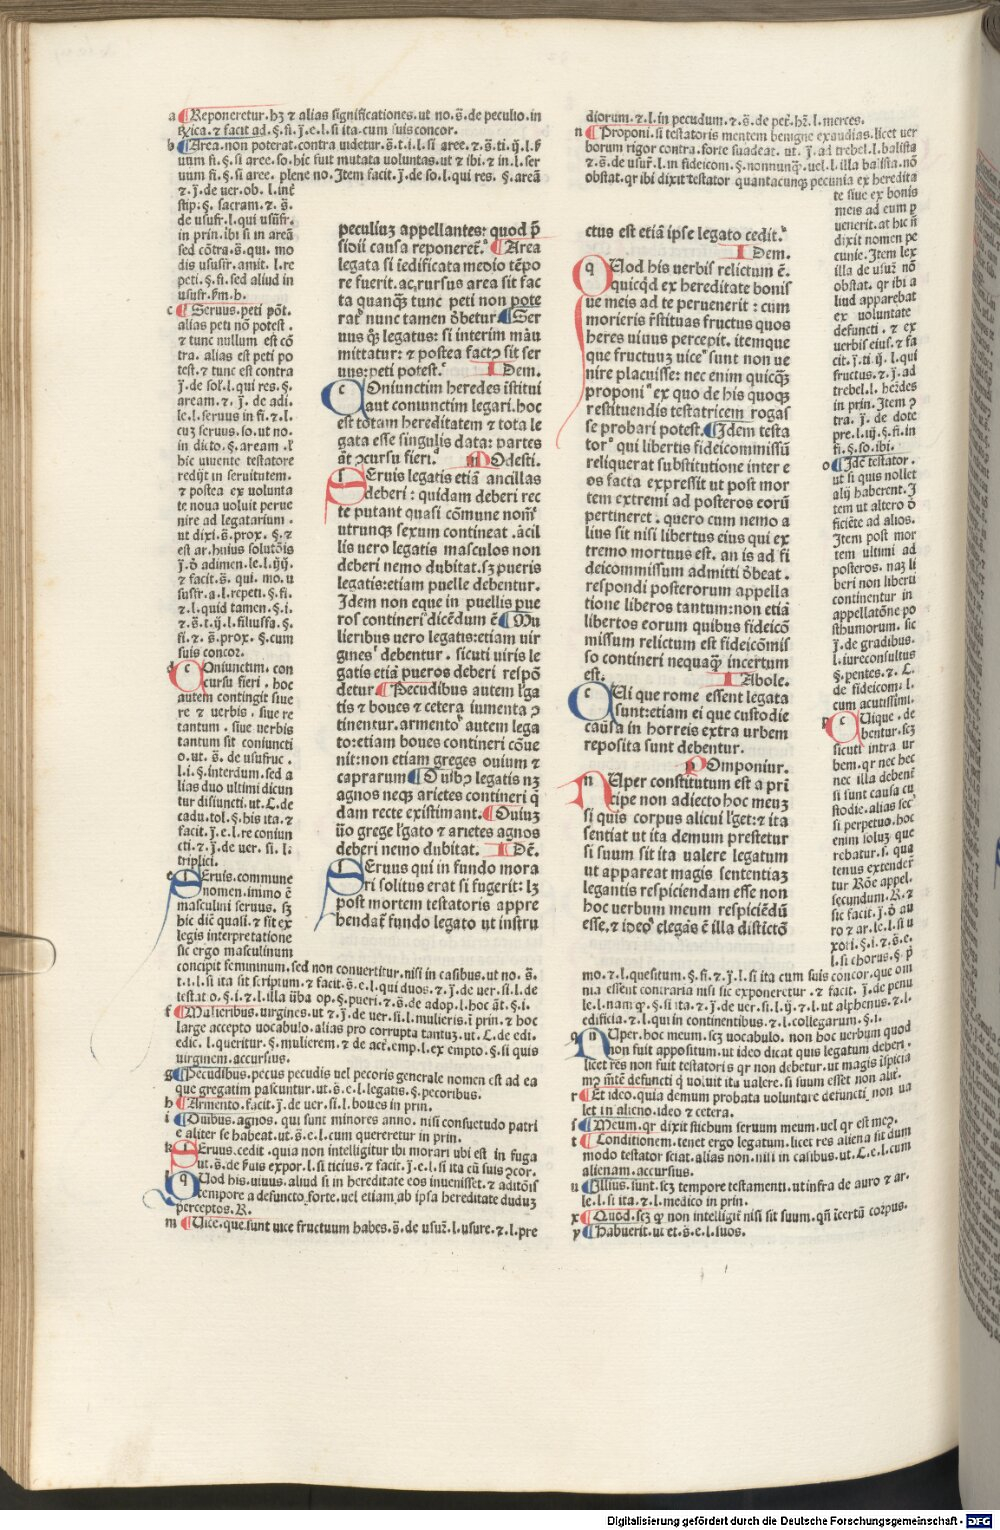 a Reponeretur.hꝫ ⁊ alias significationes.ut no.s̄.de peculio.in
rꝛica.⁊ facit ad.§.fi.j̄.e.l.si ita.cum suis concor.
b Area.non poterat.contra uidetur.s̄.t.i.l.si aree.⁊.s̄.ti.ij.l.
uum fi.§.si aree.so.hic fuit mutata voluntas.ut ⁊ ibi.⁊ in.l.ser
uum fi.§.si aree. plene no.Item facit.j̄.de so.l.qui res. §.areā
⁊.j̄.de uer.ob. l.inē
stip.§. sacram.⁊.s̄.
de usufr.l.qui usūfr.
in prin.ibi si in areā
sed cōtra.s̄.qui. mo
dis ususfr.amit. l.re
peti.§.fi.sed aliud in
usufr.
c Seruus.peti pōt.
alias peti nō potest.
⁊ tunc nullum est cō
tra. alias est peti po
test.⁊ tunc est contra
j̄.de sol.l.qui res.§.
aream.⁊. j̄. de adi
le.l.seruus in fi.⁊.l.
cuꝫ seruus.so.ut no.
in dicto.§.aream .l
hic uiuente testatore
redijt in seruitutem.
⁊ postea ex uolunta
te noua uoluit perue
nire ad legatarium.
ut dixi.s̄.prox. §.⁊
est ar.huius solutōis
j̄.ō adimen.le.l.iij.
⁊ facit.s̄. qui. mo.u
susfr.a.l.repeti.§.fi.
⁊.l.quid tamen.§.i.
⁊.s̄.t.ij.l.filiussfa.§.
fi.⁊.s̄.prox.§.cum
suis concor.
d Coniunctim. con
cursu fieri . hoc
autem contingit siue
re ⁊ uerbis. siue re
tantum. siue uerbis
tantum sit coniuncti
o.ut. s̄. de usufruc.
l.i.§.interdum.sed a
lias duo ultimi dicun
tur disiuncti.ut.C.de
cadu.tol.§.his ita.⁊
facit.j̄.e.l.re coniun
cti.⁊.j̄.de uer. si.l.
triplici.
e Seruis.commune
nomen.immo ē
masculini seruus. sꝫ
hic dic̄ quasi.⁊ sit ex
legis interpretatione
sic ergo masculinum
concipit femininum.sed non conuertitur.nisi in casibus.ut no.s̄.
t.i.l.si ita sit scriptum.⁊ facit.s̄.e.l.qui duos.⁊.j̄.de uer.si.l.de
testato.§.i.⁊.l.illa ūba op.§.pueri.⁊.s̄.de adop.l.hoc āt.§.i.
f Mulieribus.uirgines.ut ⁊.j̄.de uer.si.l.mulieris.ī prin.⁊ hoc
large accepto uocabulo.alias pro corrupta tantuꝫ.ut.C.de edi.
edic. l.queritur.§.mulierem.⁊ de act̄.emp.l.ex empto.§.si quis
uirginem.accursius.
g Pecudibus.pecus pecudis uel pecoris generale nomen est ad ea
que gregatim pascuntur.ut.s̄.e.l.legatis.§.pecoribus.
h Armento.facit.j̄.de uer.si.l.boues in prin.
i Ouibus.agnos. qui sunt minores anno. nisi consuetudo patri
e aliter se habeat.ut.s̄.e.l.cum quereretur in prin.
k Seruus.cedit.quia non intelligitur ibi morari ubi est in fuga
ut.s̄.de ꝑuis expor.l.si ticius.⁊ facit.j̄.e.l.si ita cū suis ꝯcor.
l Quod his.uiuus.aliud si in hereditate eos inuenisset.⁊ aditōis
tempore a defuncto.forte.uel etiam ab ipsa hereditate duduꝫ
perceptos.R.
m Uice.que sunt uice fructuum habes.s̄.de usuꝝ.l.usure.⁊.l.pre
peculiuꝫ appellantes: quod p̄
sidii causa reponeret̄.ᵃ Area
legata si īedificata medio tēpo
re fuerit.ac rursus area sit fac
ta quanqꝫ tunc peti non pote
ratᵇ nunc tamen ōbetur. Ser
uus qꝫ legatus: si interim māu
mittatur: ⁊ postea factꝰ sit ser
uus:peti potest.ᶜ Idem.
Coniunctim heredes īstitui
aut coniunctim legari.hoc
est totam hereditatem ⁊ tota le
gata esse singulis data: partes
āt ꝯcursu fieri.ᵈ Modesti.
Seruis legatis etiā ancillas
deberi: quidam deberi rec
te putant quasi cōmune nomēᵉ
utrunqꝫ sexum contineat.ācil
lis uero legatis masculos non
deberi nemo dubitat.sꝫ pueris
legatis:etiam puelle debentur.
Idem non eque in puellis pue
ros contineri dicēdum ē Mu
lieribus uero legatis:etiam uir
ginesᶠ debentur. sicuti uiris le
gatis etiā pueros deberi respō
detur. Pecudibusᵍ autem lega
tis ⁊ boues ⁊ cetera iumenta ꝯ
tinentur.armentoʰ autem lega
to:etiam boues contineri cōue
nit:non etiam greges ouium ⁊
caprarum Ouibꝰ legatis neqꝫ
agnos neqꝫ arietes contineri q̄
dam recte existimant. Ouiuꝫ
ūo grege lꝫgato ⁊ arietes agnos
deberi nemo dubitat. Idē.
Seruus qui in fundo mora
ri solitus erat si fugerit: lꝫ
post mortem testatoris appre
hendat̄ fundo legato ut instru
diorum.⁊.l.in pecudum.⁊.s̄.de peť.hꝫ.l.merces.
n Proponi.si testatoris mentem benigne exaudias.licet uer
borum rigor contra.forte suadeat. ut. j̄.ad trebel.l.balista
⁊.s̄.de usuꝝ.l.in fideicom.§.nonnunqꝫ.uel.l.illa balista.nō
obstat.qr ibi dixit testator quantacunqꝫ pecunia ex heredita
te siue ex bonis
meis ad eum p
uenerit.at hic n̄
dixit nomen pe
cunie.Item lex
illa de usuꝝ nō
obstat.qr ibi a
liud apparebat
ex uoluntate
defuncti.⁊ ex
uerbis eius.⁊ fa
cit.j̄.ti.ij.l.qui
fructus.⁊.j̄.ad
trebel.l.hēdes
in prin.Item ꝯ
tra.j̄.de dote
pre.l.iij.§.fi.in
fi.§.so.ibi.
o Idē testator.
ut si quis nollet
alij haberent.I
tem ut altero ō
ficiēte ad alios.
Item post mor
tem ultimi ad
posteros. naꝫ li
beri non liberti
continentur in
appellatōne po
sthumorum. sic
j̄.de gradibus.
l.iureconsultus
§.pentes.⁊.C.
de fideicom.l.
cum acutissimi.
p Cuique.de
bentur.scꝫ
sicuti intra ur
bem.qr nec hec
nec illa debent̄
si sunt causa cu
stodie.alias sec̄
si perpetuo.hoc
enim soluꝫ que
rebatur.s. qua
tenus extender̄
tur Rōe appel.
secundum.R.⁊
sic facit.j̄.ō au
ro ⁊ ar.le.l.si u
xori.§.i.⁊.s̄.e.
l.si chorus.§.p̄
mo.⁊.l.quesitum.§.fi.⁊.j̄.l.si ita cum suis concor.que om
nia essent contraria nisi sic exponeretur.⁊ facit.j̄.de penu
le.l.nam qꝫ.§.si ita.⁊.j̄.de uer.si.l.ij.⁊.l.ut alphenus.⁊.l.
edificia.⁊.l.qui in continentibus.⁊.l.collegarum.§.i.
q Nuper.hoc meum.scꝫ uocabulo. non hoc uerbum quod
non fuit appositum.ut ideo dicat quis legatum deberi.
licet res non fuit testatoris qr non debetur.ut magis īspicia
mꝰ mētē defuncti q̄ uoluit ita ualere.si suum esset non aliť.
r Et ideo.quia demum probata uoluntare defuncti non ua
let in alieno.ideo ⁊ cetera.
s Meum.qr dixit stichum seruum meum.uel qr est meꝰ.
t Conditionem.tenet ergo legatum.licet res aliena sit dum
modo testator sciat.alias non.nisi in casibus.ut.C.e.l.cum
alienam.accursius.
u Illius.sunt.scꝫ tempore testamenti.ut infra de auro ⁊ ar.
le.l.si ita.⁊.l.medico in prin.
x Quod.scꝫ qꝫ non intelligit̄ nisi sit suum.qn̄ īcertū corpus.
y Habuerit.ut et.s̄.e.l.suos.
ctus est etiā ipse legato cedit.ᵏ
Idem.
Quod his uerbis relictum ē.
quicqꝫd ex hereditate bonis
ue meis ad te peruenerit : cum
morieris r̄stituas fructus quos
heres uiuus percepit. itemque
que fructuuꝫ uiceᵐ sunt non ue
nire placuisse: nec enim quicqꝫ
proponiⁿ ex quo de his quoqꝫ
restituendis testatricem rogas
se probari potest. Idem testa
torᵒ qui libertis fideicommissū
reliquerat substitutione inter e
os facta expressit ut post mor
tem extremi ad posteros eorū
pertineret. quero cum nemo a
lius sit nisi libertus eius qui ex
tremo mortuus est. an is ad fi
deicommissum admitti ōbeat.
respondi posterorum appella
tione liberos tantum:non etiā
libertos eorum quibus fideicō
missum relictum est fideicōmis
so contineri nequaqꝫ incertum
est. Iabole.
Cui que rome essent legata
sunt:etiam ei que custodie
causa in horreis extra urbem
reposita sunt debentur.
Pomponiur.
Nuper constitutum est a prī
cipe non adiecto hoc meuꝫ
si quis corpus alicui lꝫget:⁊ ita
sentiat ut ita demum prestetur
si suum sit ita ualere legatum
ut appareat magis sententiaꝫ
legantis respiciendam esse non
hoc uerbum meum respiciēdū
esse.⁊ ideoʳ elegās ē illa distictō
Digitalisierung gefördert durch die Deutsche Forschungsgemeinschaft - DFG